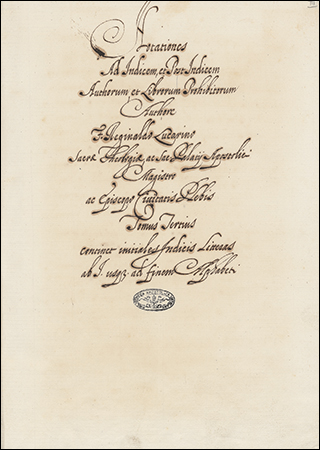 Notationes
Ad Indicem, et Post Indicem
Authorum, et Librorum Prohibitorum
Authore
F. Reginaldo Lucarino
Sacræ Theologiæ, ac Sac. Palatij Apostolici
Magistro
ac Episcopo Ciuitatis Plebis
Tomus Tertius
continet initiales Indicis Literas
ab I. usq3 ad finem Alphabeti